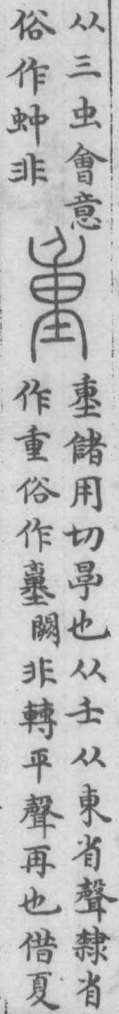 从三虫會意
俗作蚛非
儲用切㫗也从壬从東省聲隸省
作重俗作闕非轉平聲再也借夏